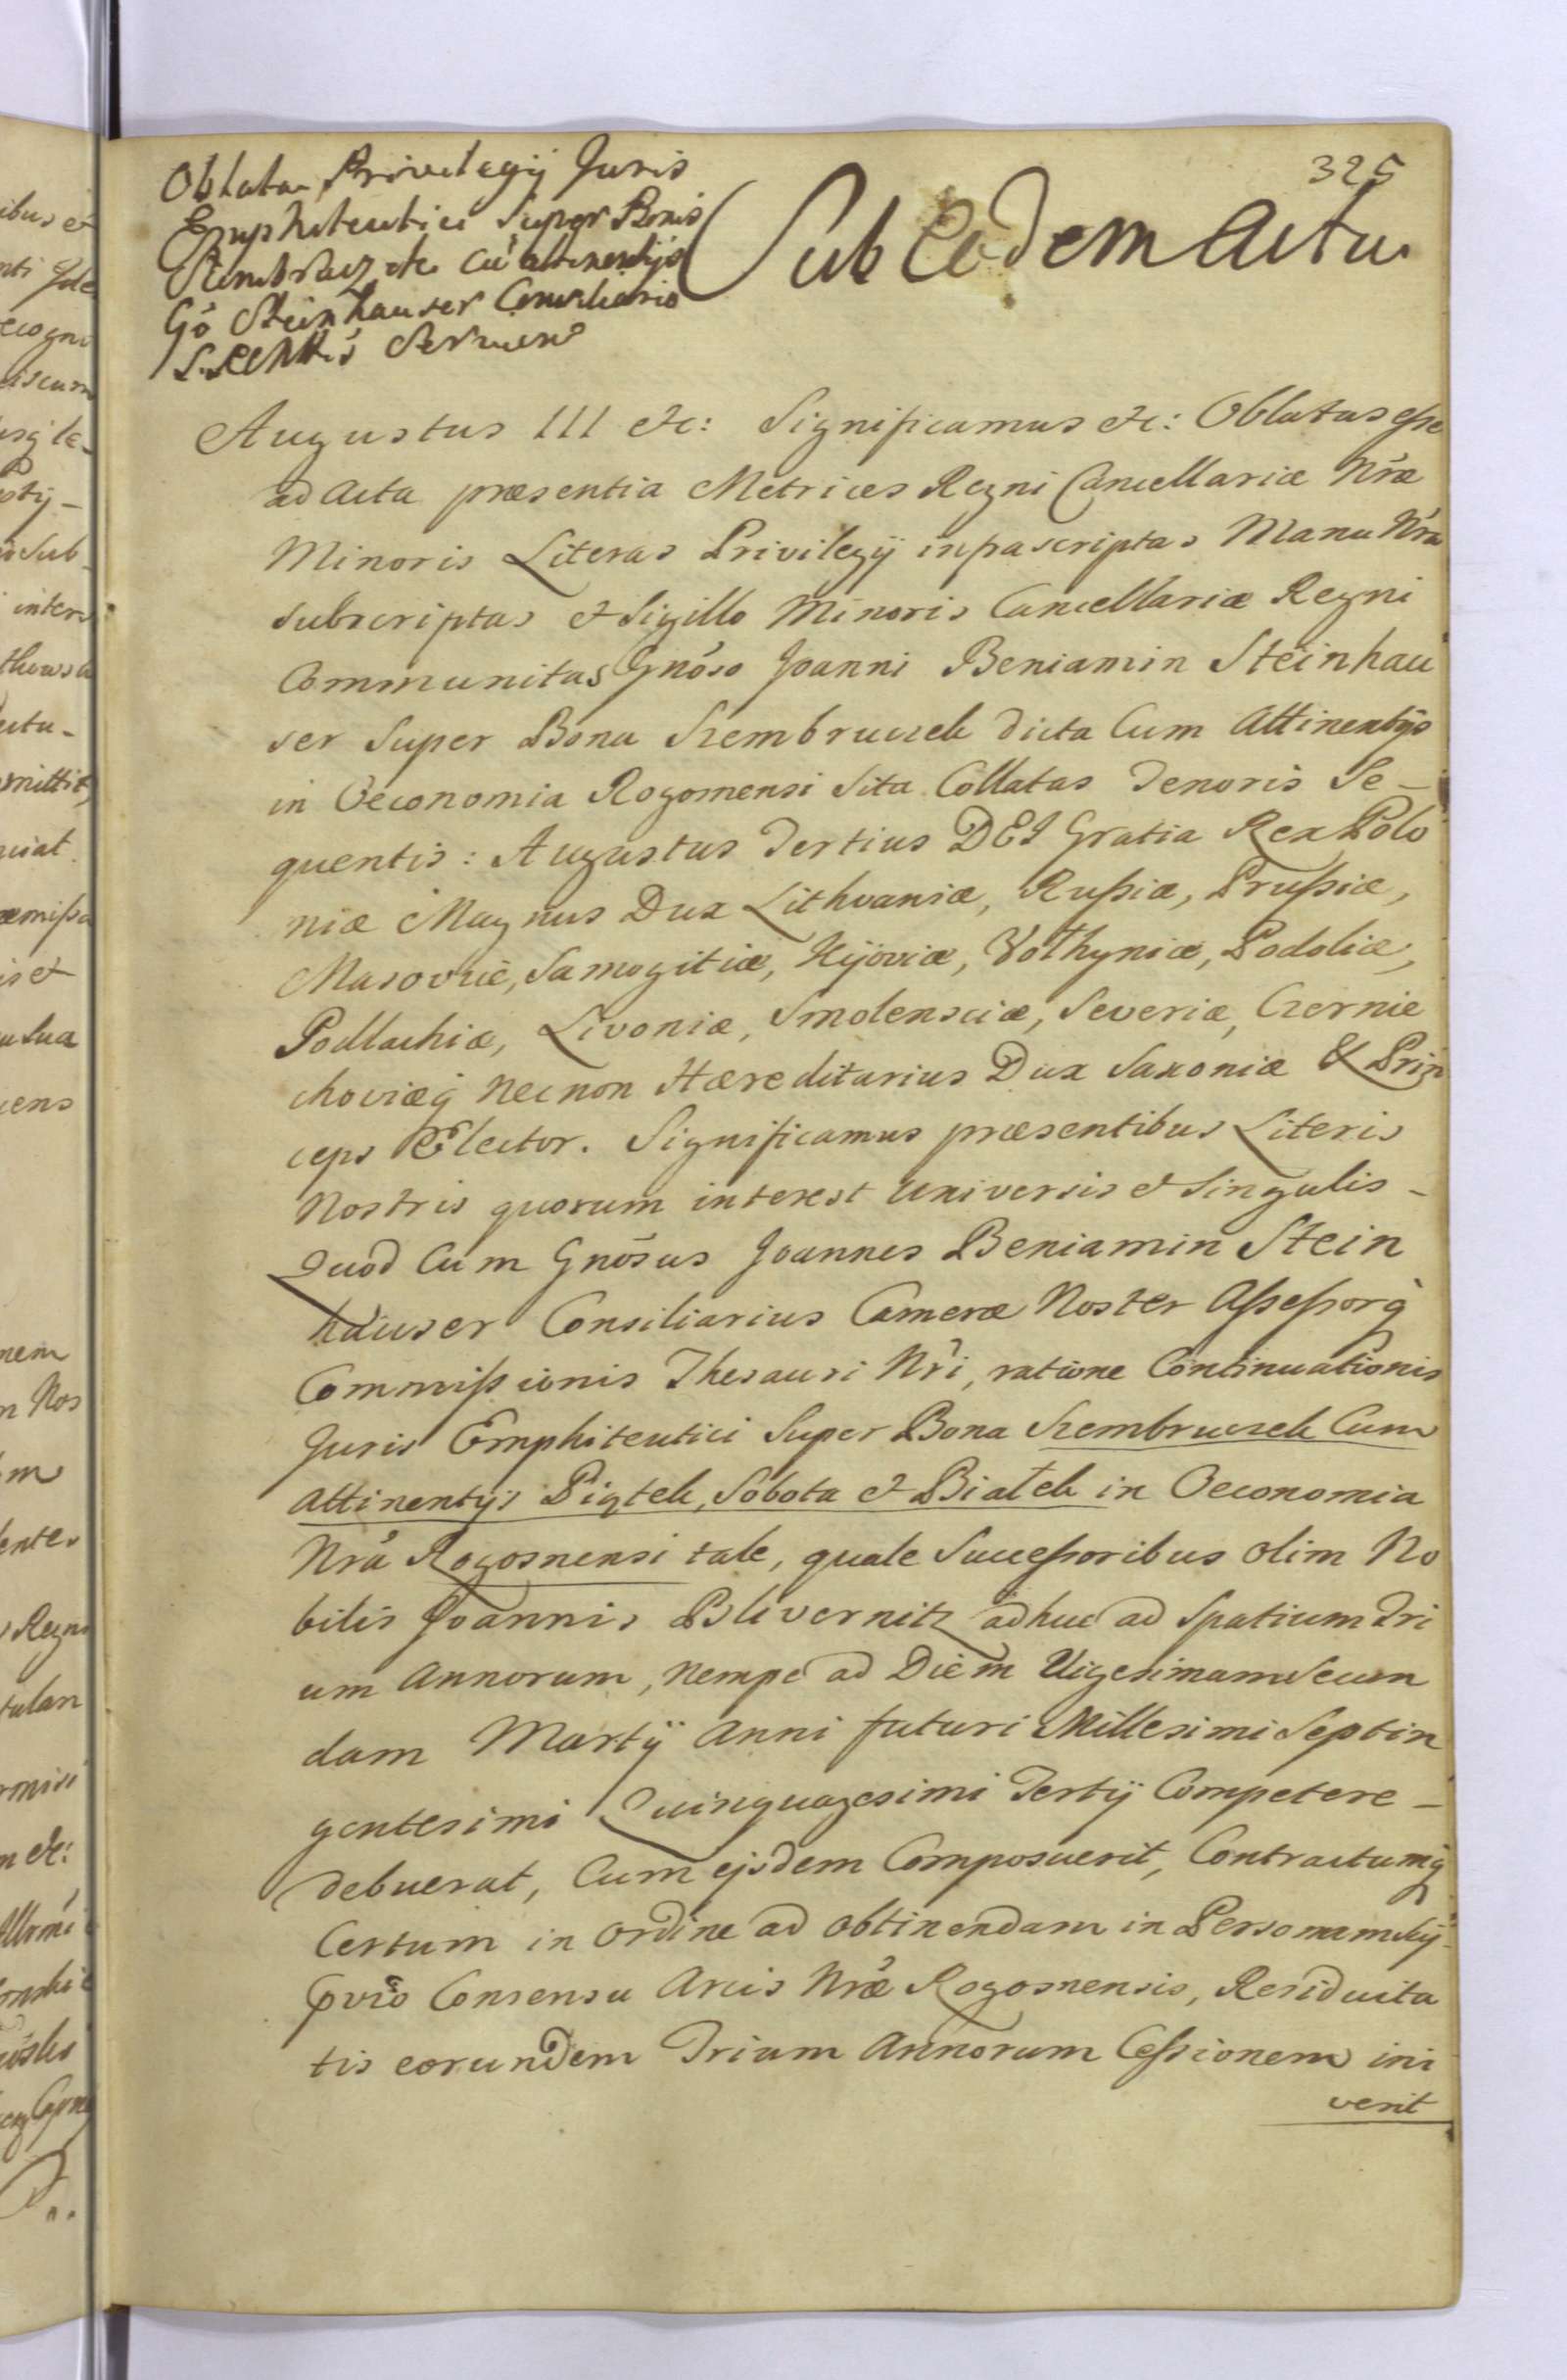 325
Oblata Privilegij Juris
Emphiteutici Super Bonis
Szembruczek Cū attinentijs
Gō Steinhauser Consiliario
Serviens
Sub Eodem Actu
Augustus III etc: Significamus etc: Oblatas esse
ad Acta præsentia Metrices Regni Cancellariæ Nræ
Minoris Literas Privilegij infrascriptas Manu Nra
subscriptas et Sigillo Minoris Cancellariæ Regni
Communitas Gnōso Joanni Beniamin Steinhau
ser Super Bona Szembruczek dicta Cum Attinentijs
in Oeconomia Rogomensi Sita Collatas Tenoris Se-
quentis: Augustus Tertius DEI Gratia Rex Polo
niæ Magnus Dux Lithvaniæ, Rußiæ, Prußiæ,
Masoviæ, Samogitiæ, Kijoviæ, Volhyniæ, Podoliæ,
Podlachiæ, Livoniæ, Smolensciæ, Severiæ, Czernie
choviæq̃ necnon Hæreditarius Dux Saxoniæ & Prin
ceps Elector. Significamus præsentibus Literis
Nostris quorum interest Universis et Singulis -
Quod Cum Gnōsus Joannes Beniamin Stein
hauser Consiliarius Cameræ Noster Aßeßorq̃
Commißionis Thesauri Nri, ratione Continuationis
Juris Emphiteutici Super Bona Szembruczek Cum
attinentijs Piątek, Sobota et Białek in Oeconomia
Nrā Rogosnensi tale, quale Succeßoribus olim No
bilis Joannis Blivernitz adhuc ad Spatium Tri
um Annorum, nempe ad Diem Vigesimam Secun
dam Martij Anni futuri Millesimi Septin
gentesimi Quinquagesimi Tertij Competere -
debuerat, Cum ejsdem Composuerit, Contractumq̃
Certum in ordine ad obtinendam in Personam
Consensu Arcis Nræ Rogosnensis, Residuita
tis eorundem Trium Annorum Ceßionem ini
verit